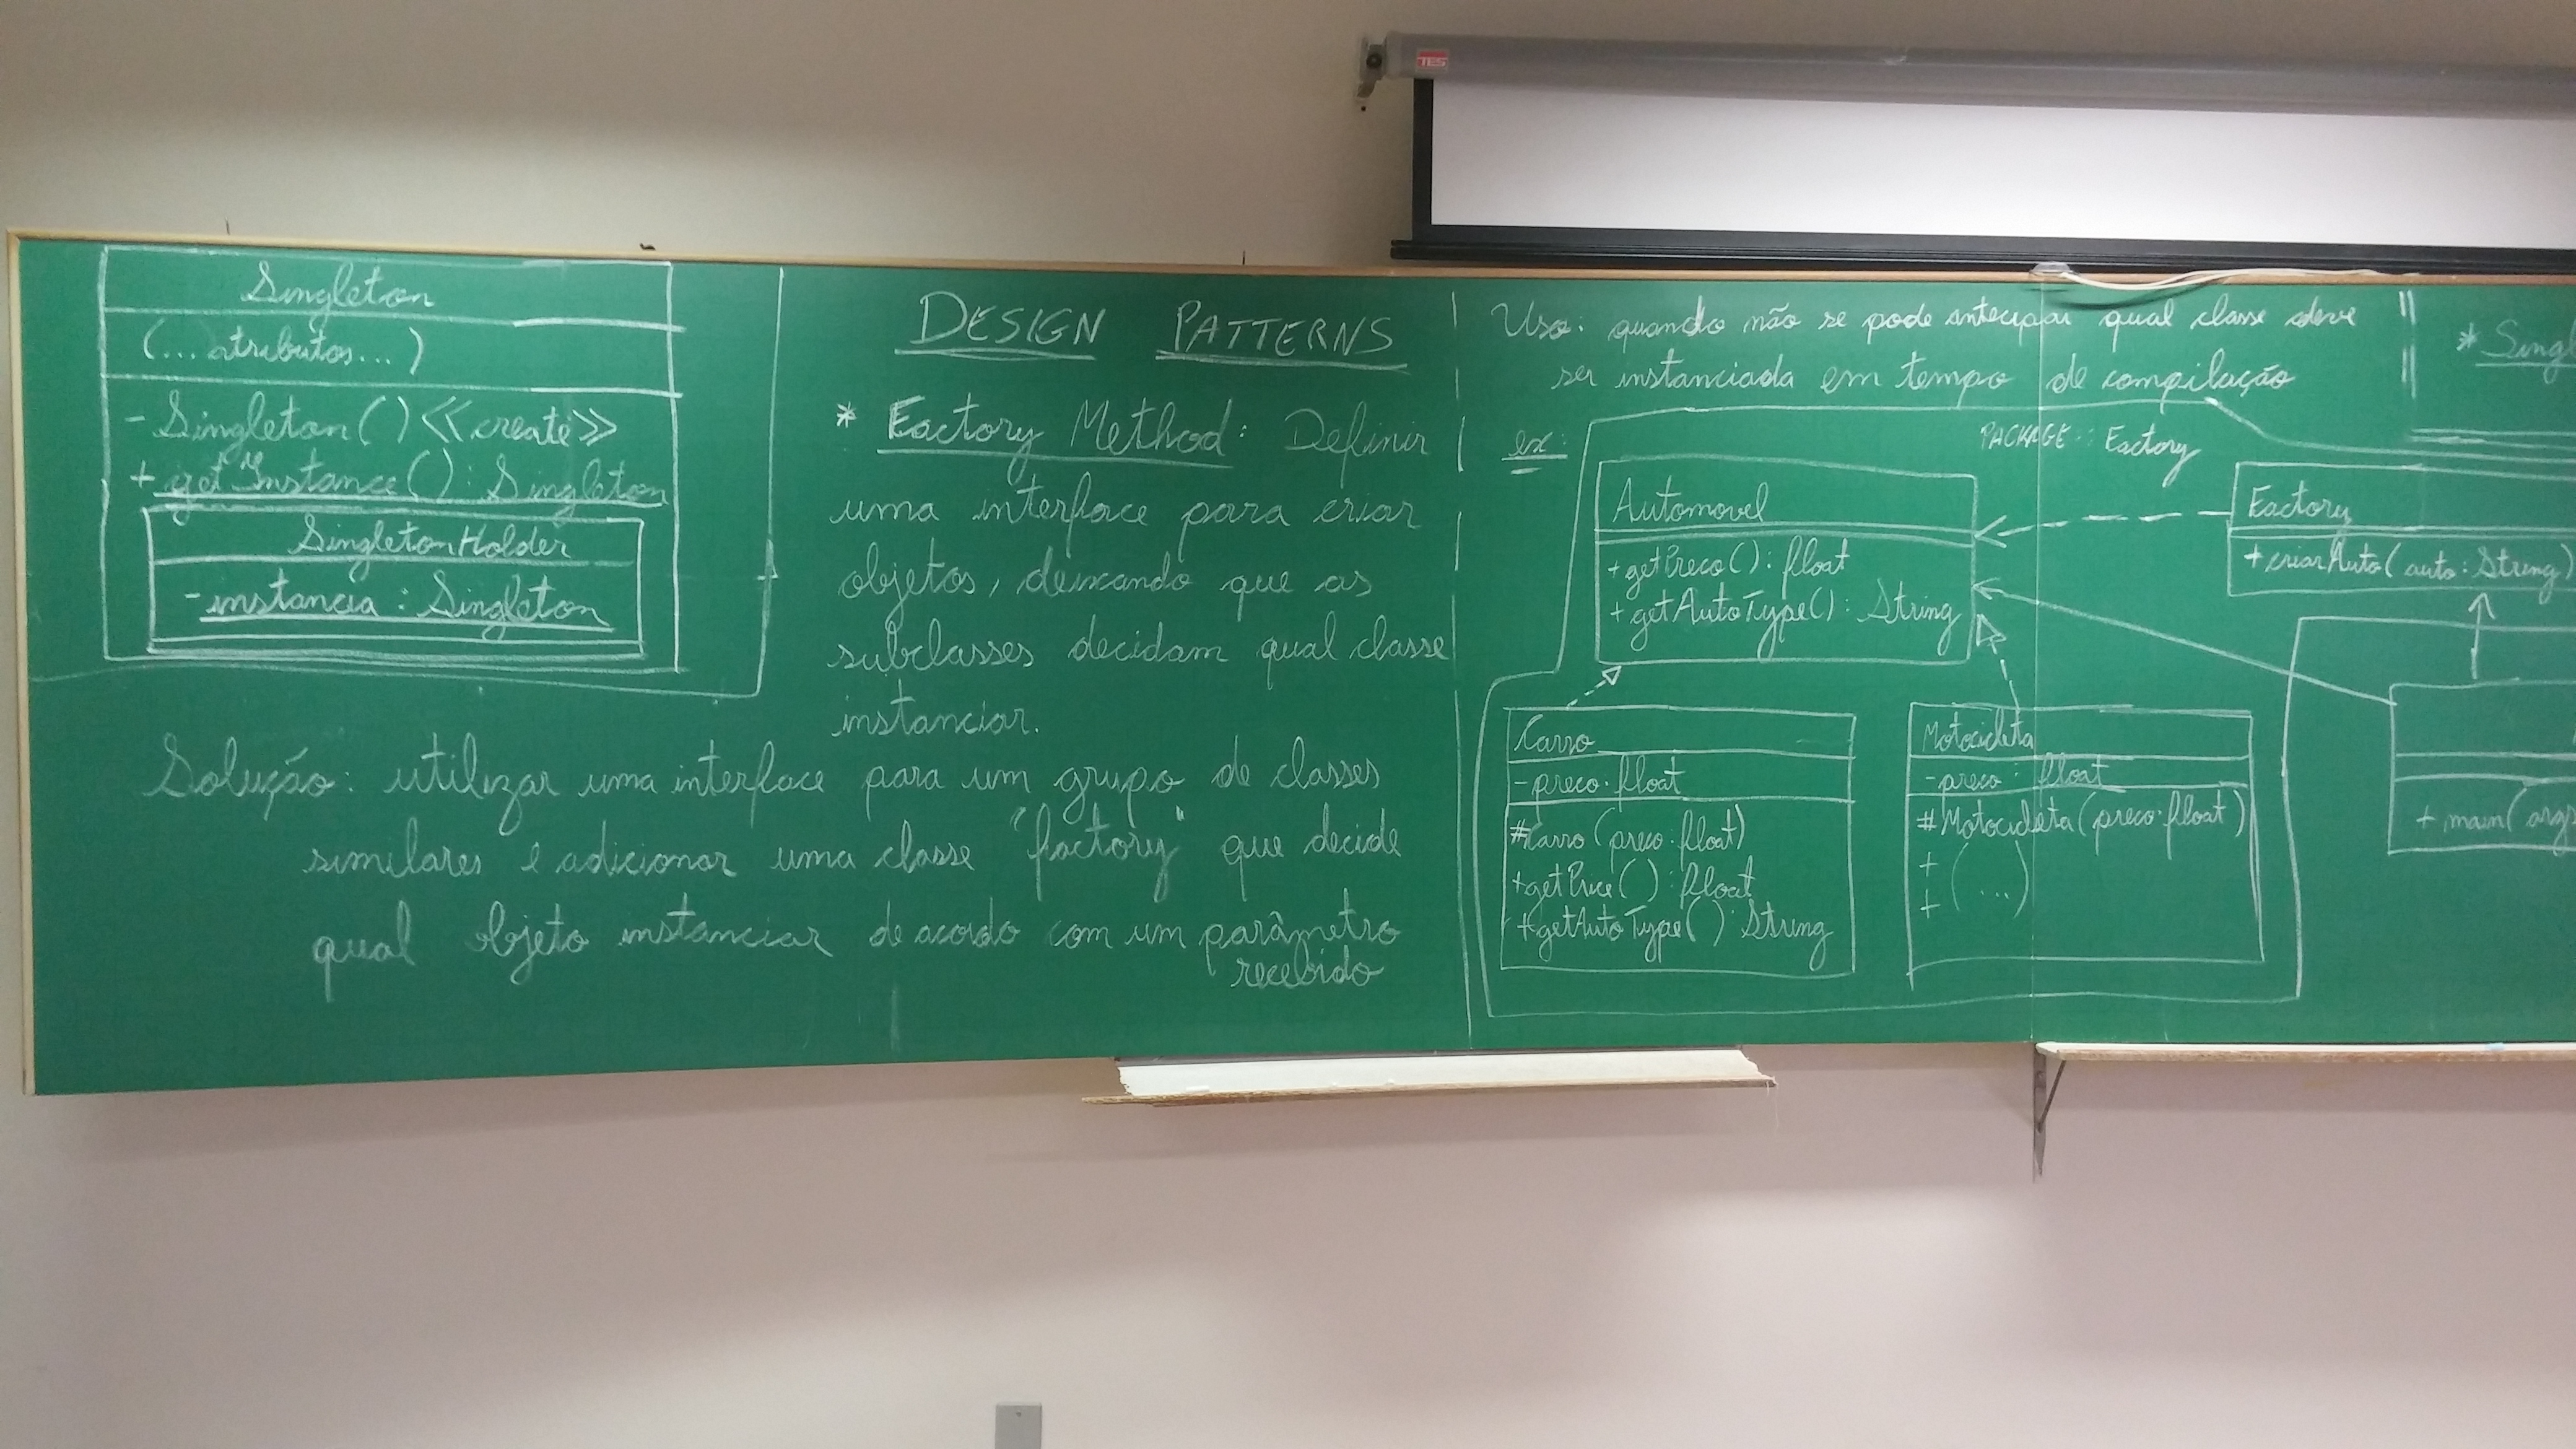 TES
Singleton
(...atributos...)
- Singleton() <<create>>
+ getInstance(): Singleton
SingletonHolder
- instancia: Singleton
DESIGN PATTERNS
* Factory Method: Definir
uma interface para criar
objetos, deixando que as
subclasses decidam qual classe
instanciar.
Solução: utilizar uma interface para um grupo de classes
similares e adicionar uma classe "factory" que decide
qual objeto instanciar de acordo com um parâmetro
recebido
Uso: quando não se pode antecipar qual classe deve
ser instanciada em tempo de compilação
ex:
PACKAGE: Factory
Automovel
+ getPreco(): float
+ getAutoType(): String
Factory
+ criarAuto(auto: String)
Carro
- preco: float
# Carro(preco: float)
+ getPrice(): float
+ getAutoType(): String
Motocicleta
- preco: float
# Motocicleta(preco: float)
+
+ (...)
+ main(args
* Singl